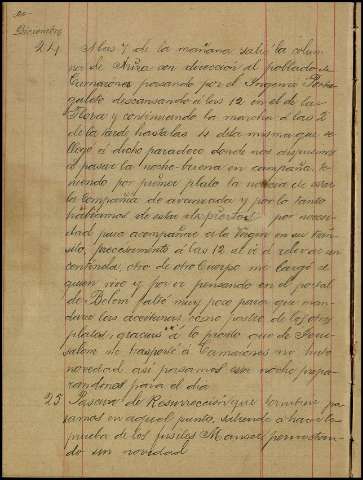 Diciembre
24 A las 7 de la mañana salió la colum
na de Ariza con dirección al poblado de
Camarones pasando por el Ingenio Porte
gulete descansando a las 12 en el de la
Flora y continuando la marcha á las 2
de la tarde hasta las 4 de la misma que se
llegó á dicho paradero donde nos dispusimos
a pasar la noche-buena en campaña, te
niendo por primer plato la noticia de estar
la Compañía de avanzada y por lo tanto
habíamos de estar despiertos por nece
dad para acompañar a la Virgen en su
precisamente á las 12 al ir á relevar un
centinela, otro de otro Cuerpo me largó el
quien vive y por ir pensando en el portal
de Belem faltó muy poco para que man
dura las aceitunas como postre de los otros
platos, gracias á lo pronto que de Jeru
salem me trasporté á Camarones no hubo
novedad así pasamos esta noche prepa
randonos para el dia
25 Pascua de Resurrección que tambien pa
samos en aquel punto, saliendo á hacer la
prueba de los fusiles Mauser
do sin novedad